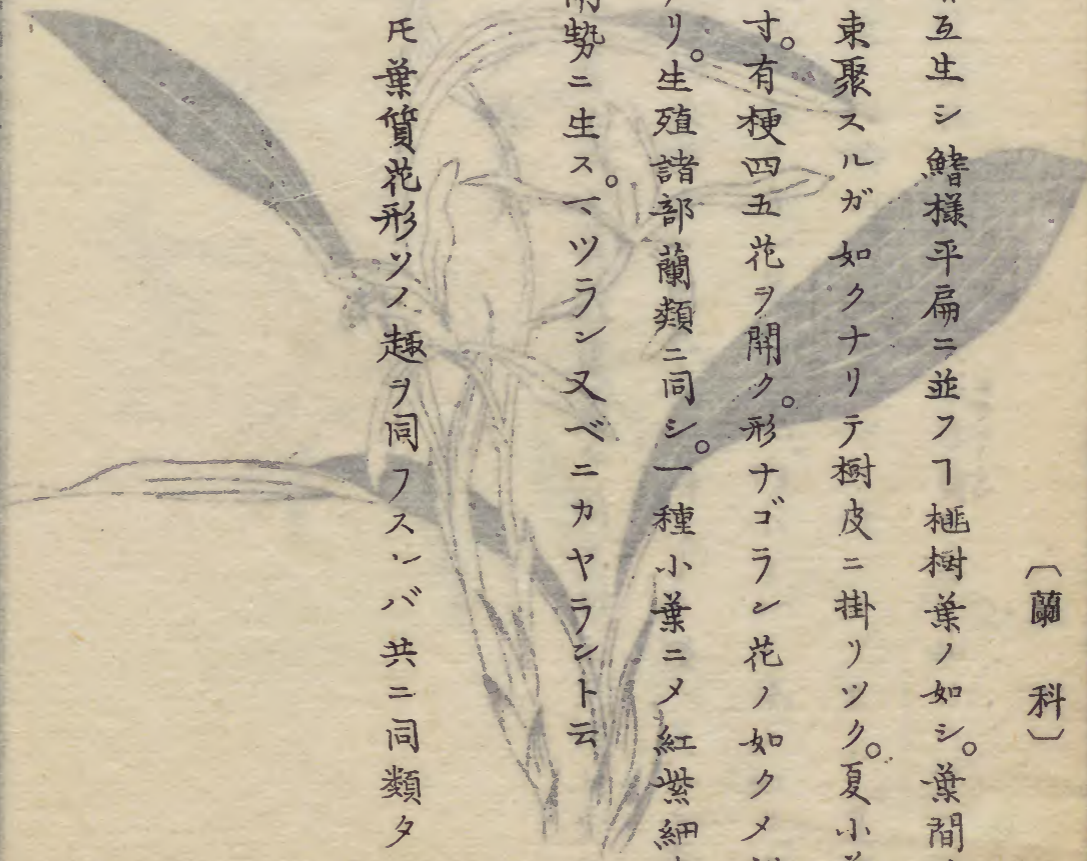 〔蘭科〕
互生シ鰭様平扁ニ並フヿ榧樹葉ノ如シ。葉間
束聚スルガ如クナリテ樹皮ニ掛リツク。夏小
寸。有梗四五花ヲ開ク。形ナゴラン花ノ如クメ
リ。生殖諸部蘭類ニ同シ。一種小葉ニメ紅紫細
勢ニ生ス。マツラン又ベニカヤラント云
㐧葉質花形ソノ趣ヲ同フスレバ共ニ同類タ